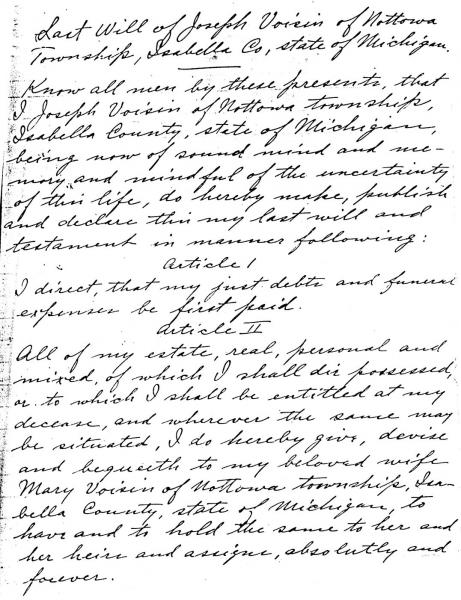 Last Will of Joseph Voisin of Nottowa
Township, Isabella Co, state of Michigan.
Know all men by these presents, that
I Joseph Voisin of Nottowa township,
Isabella County, state of Michigan,
being now of sound mind and me-
mory and mindful of the uncertainty
of this life, do hereby make, publish
and declare this my last will and
testament in manner following:
Article I
I direct, that my just debts and funeral
expenses be first paid.
Article II
All of my estate, real, personal and
mixed, of which I shall die possessed,
or to which I shall be entitled at my
decease, and wherever the same may
be situated, I do hereby give, devise
and bequeth to my beloved wife
Mary Voisin of Nottowa township, Isa-
bella County, state of Michigan, to
have and to hold the same to her and
her heirs and assigns, absolutly and
forever.